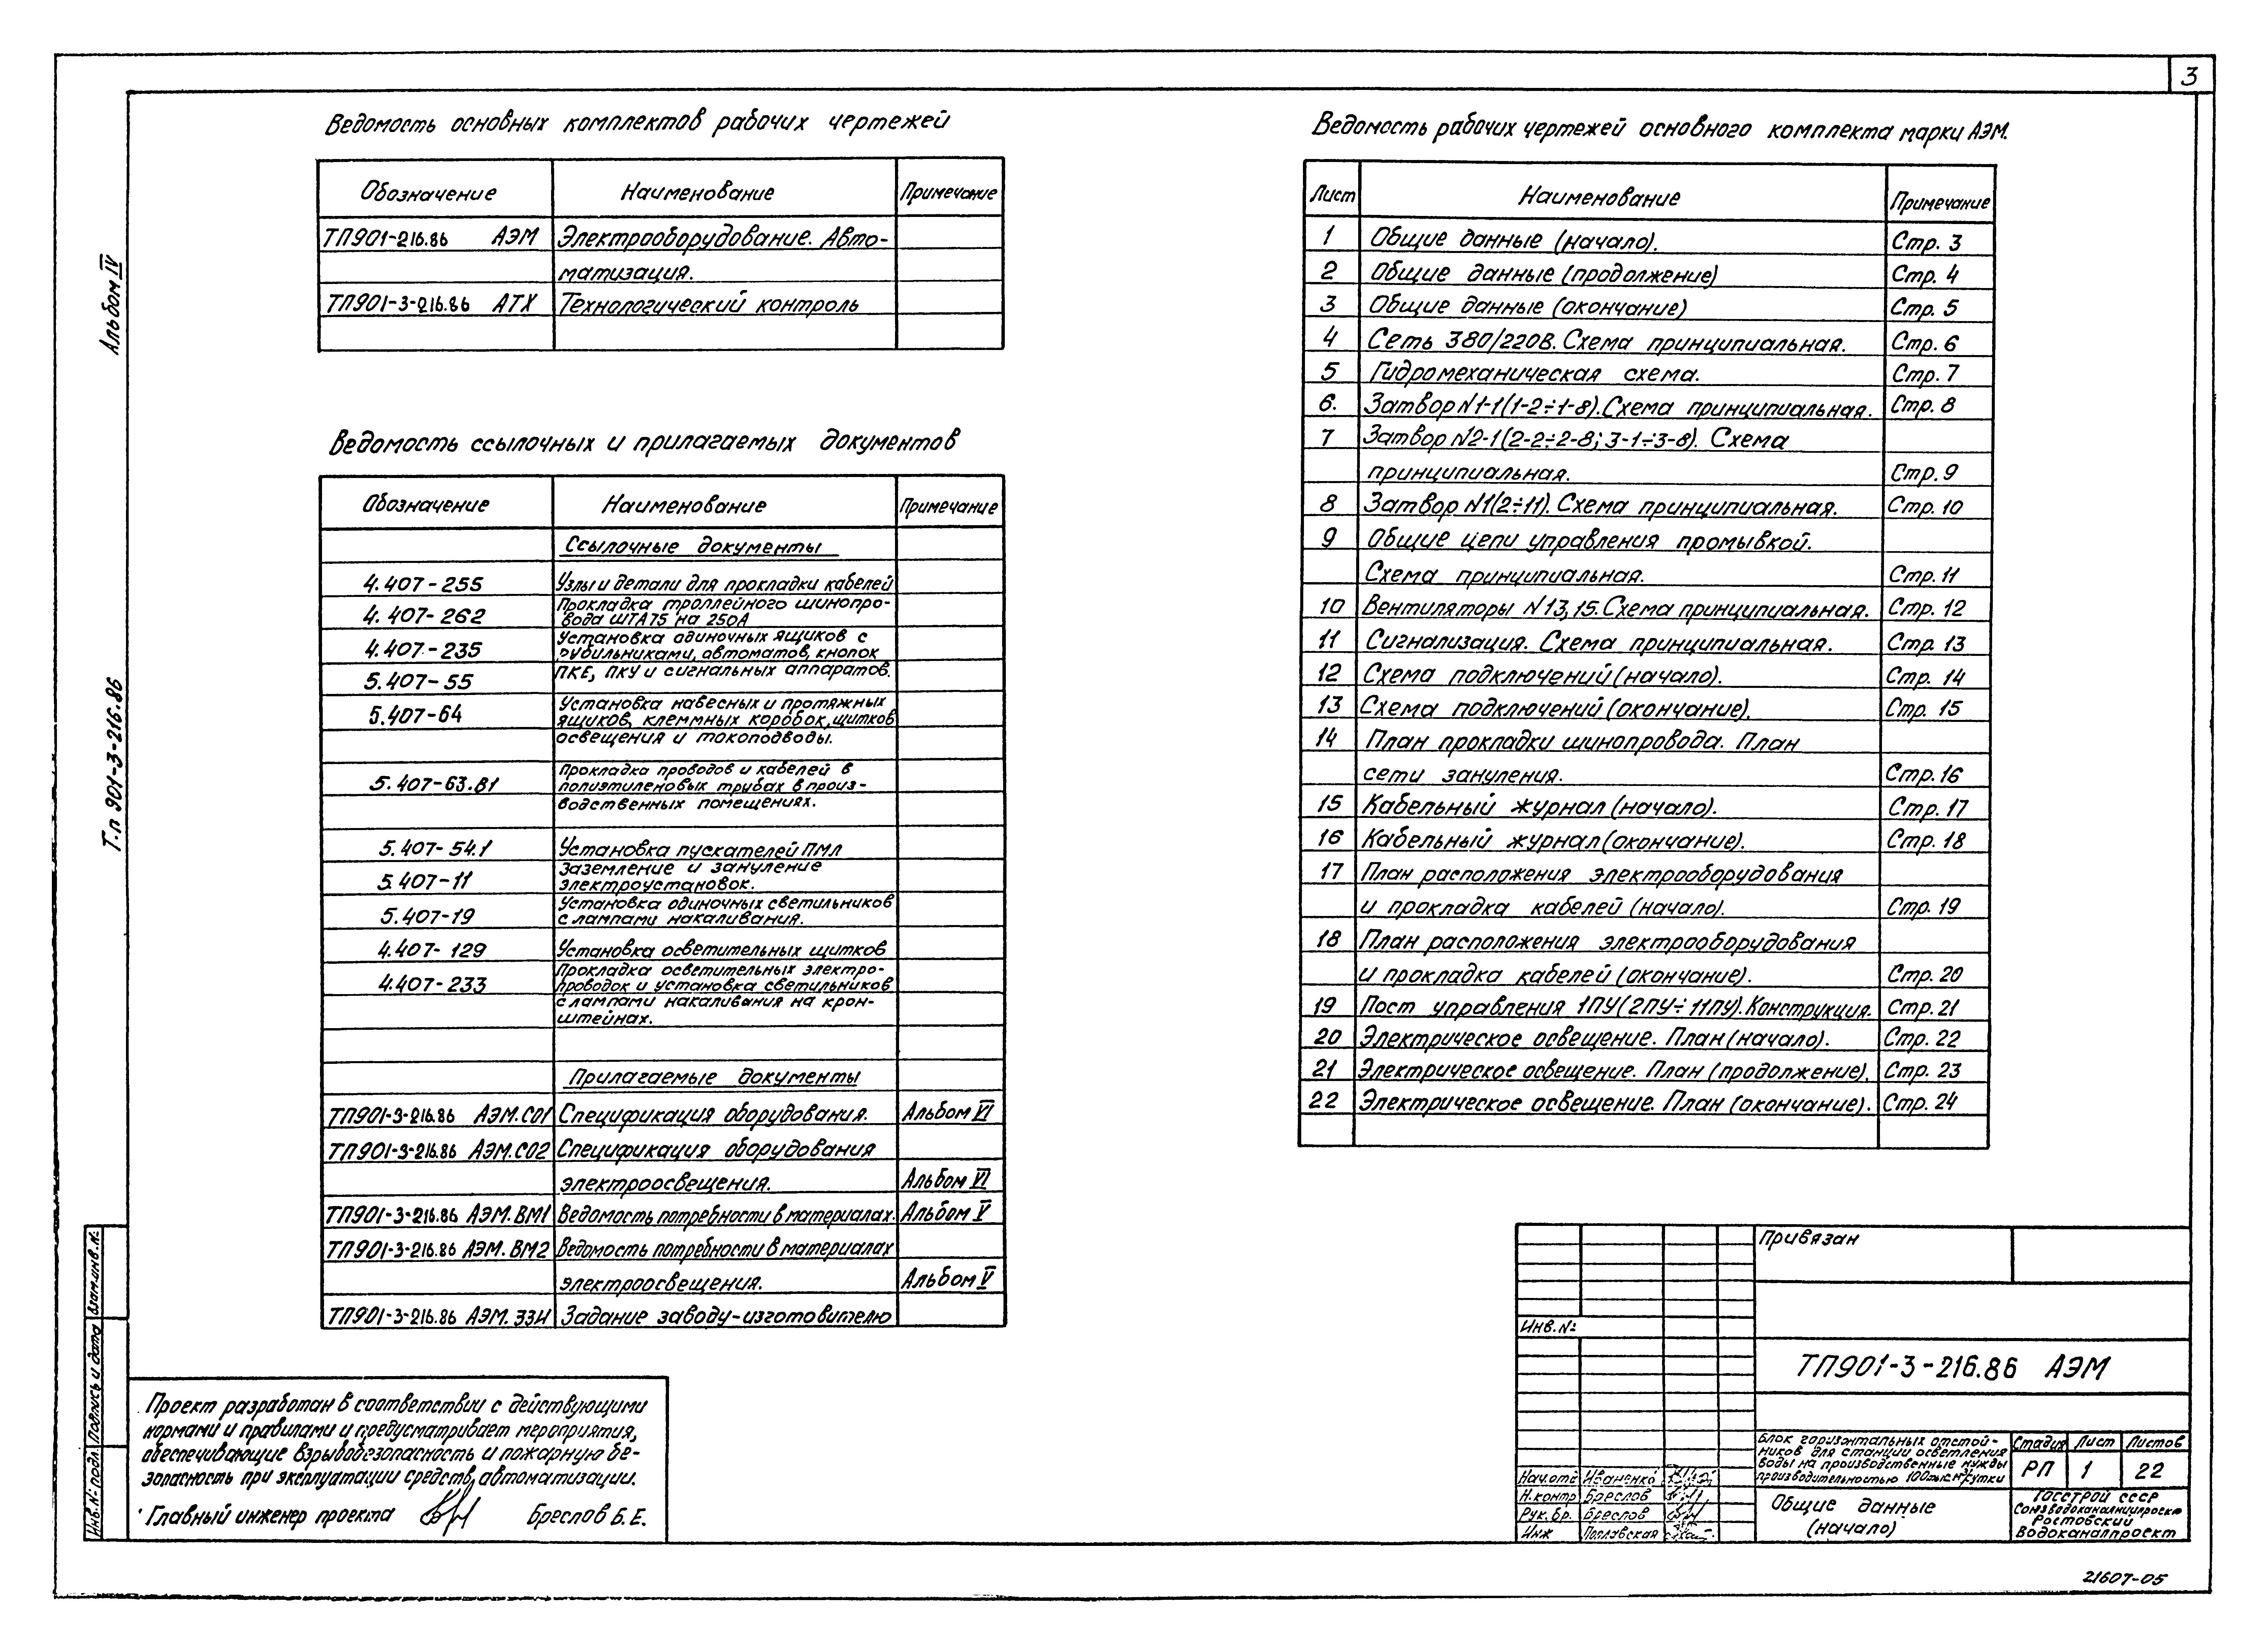 3
Альбом IV
Т.п 901-3-216.86
Ведомость основных комплектов рабочих чертежей
Обозначение Наименование Примечание
ТП901-216.86 АЭМ Электрооборудование. Авто-
матизация.
ТП901-3-216.86 АТХ Технологический контроль
Ведомость ссылочных и прилагаемых документов
Обозначение Наименование Примечание
Ссылочные документы
4.407-255 Узлы и детали для прокладки кабелей
4.407-262 Прокладка троллейного шинопро-
вода ШТА75 на 250А
4.407-235 Установка одиночных ящиков с
рубильниками, автоматов, кнопок
5.407-55 ПКЕ, ПКУ и сигнальных аппаратов.
5.407-64 Установка навесных и протяжных
ящиков, клеммных коробок, щитков
освещения и токоподводы.
5.407-63.В1 Прокладка проводов и кабелей в
полиэтиленовых трубах в произ-
водственных помещениях.
5.407-54.1 Установка пускателей ПМЛ
5.407-11 Заземление и зануление
электроустановок.
5.407-19 Установка одиночных светильников
с лампами накаливания.
4.407-129 Установка осветительных щитков
4.407-233 Прокладка осветительных электро-
проводок и установка светильников
с лампами накаливания на крон-
штейнах.
Прилагаемые документы
ТП901-3-216.86 АЭМ.СО1 Спецификация оборудования. Альбом VI
ТП901-3-216.86 АЭМ.СО2 Спецификация оборудования
электроосвещения. Альбом VI
ТП901-3-216.86 АЭМ.ВМ1 Ведомость потребности в материалах. Альбом V
ТП901-3-216.86 АЭМ.ВМ2 Ведомость потребности в материалах
электроосвещения. Альбом V
ТП901-3-216.86 АЭМ.ЗЗИ Задание заводу-изготовителю
Ведомость рабочих чертежей основного комплекта марки АЭМ.
Лист Наименование Примечание
1 Общие данные (начало). Стр. 3
2 Общие данные (продолжение) Стр. 4
3 Общие данные (окончание) Стр. 5
4 Сеть 380/220В. Схема принципиальная. Стр. 6
5 Гидромеханическая схема. Стр. 7
6. Затвор N1-1(1-2÷1-8). Схема принципиальная. Стр. 8
7 Затвор N2-1(2-2÷2-8; 3-1÷3-8). Схема
принципиальная. Стр. 9
8 Затвор N1(2÷11). Схема принципиальная. Стр. 10
9 Общие цепи управления промывкой.
Схема принципиальная. Стр. 11
10 Вентиляторы N13,15. Схема принципиальная. Стр. 12
11 Сигнализация. Схема принципиальная. Стр. 13
12 Схема подключений (начало). Стр. 14
13 Схема подключений (окончание). Стр. 15
14 План прокладки шинопровода. План
сети зануления. Стр. 16
15 Кабельный журнал (начало). Стр. 17
16 Кабельный журнал (окончание). Стр. 18
17 План расположения электрооборудования
и прокладка кабелей (начало). Стр. 19
18 План расположения электрооборудования
и прокладка кабелей (окончание). Стр. 20
19 Пост управления 1ПУ(2ПУ÷11ПУ). Конструкция. Стр. 21
20 Электрическое освещение. План (начало). Стр. 22
21 Электрическое освещение. План (продолжение). Стр. 23
22 Электрическое освещение. План (окончание). Стр. 24
Взам.инв.№:
Подпись и дата
Инв.№:подл.
Проект разработан в соответствии с действующими
нормами и правилами и предусматривает мероприятия,
обеспечивающие взрывобезопасность и пожарную бе-
зопасность при эксплуатации средств автоматизации.
Главный инженер проекта Бреслов Б. Е.
Привязан
Инв.№:
ТП901-3-216.86 АЭМ
Блок горизонтальных отстой-
ников для станции осветления
воды на производственные нужды
производительностью 100тыс.м³/сутки
Стадия Лист Листов
РП 1 22
Нач.отд Иваненко
Н.контр Бреслов
Рук.бр. Бреслов
Инж Поплавская
Общие данные
(начало)
Госстрой СССР
Союзводоканалниипроект
Ростовский
Водоканалпроект
21607-05